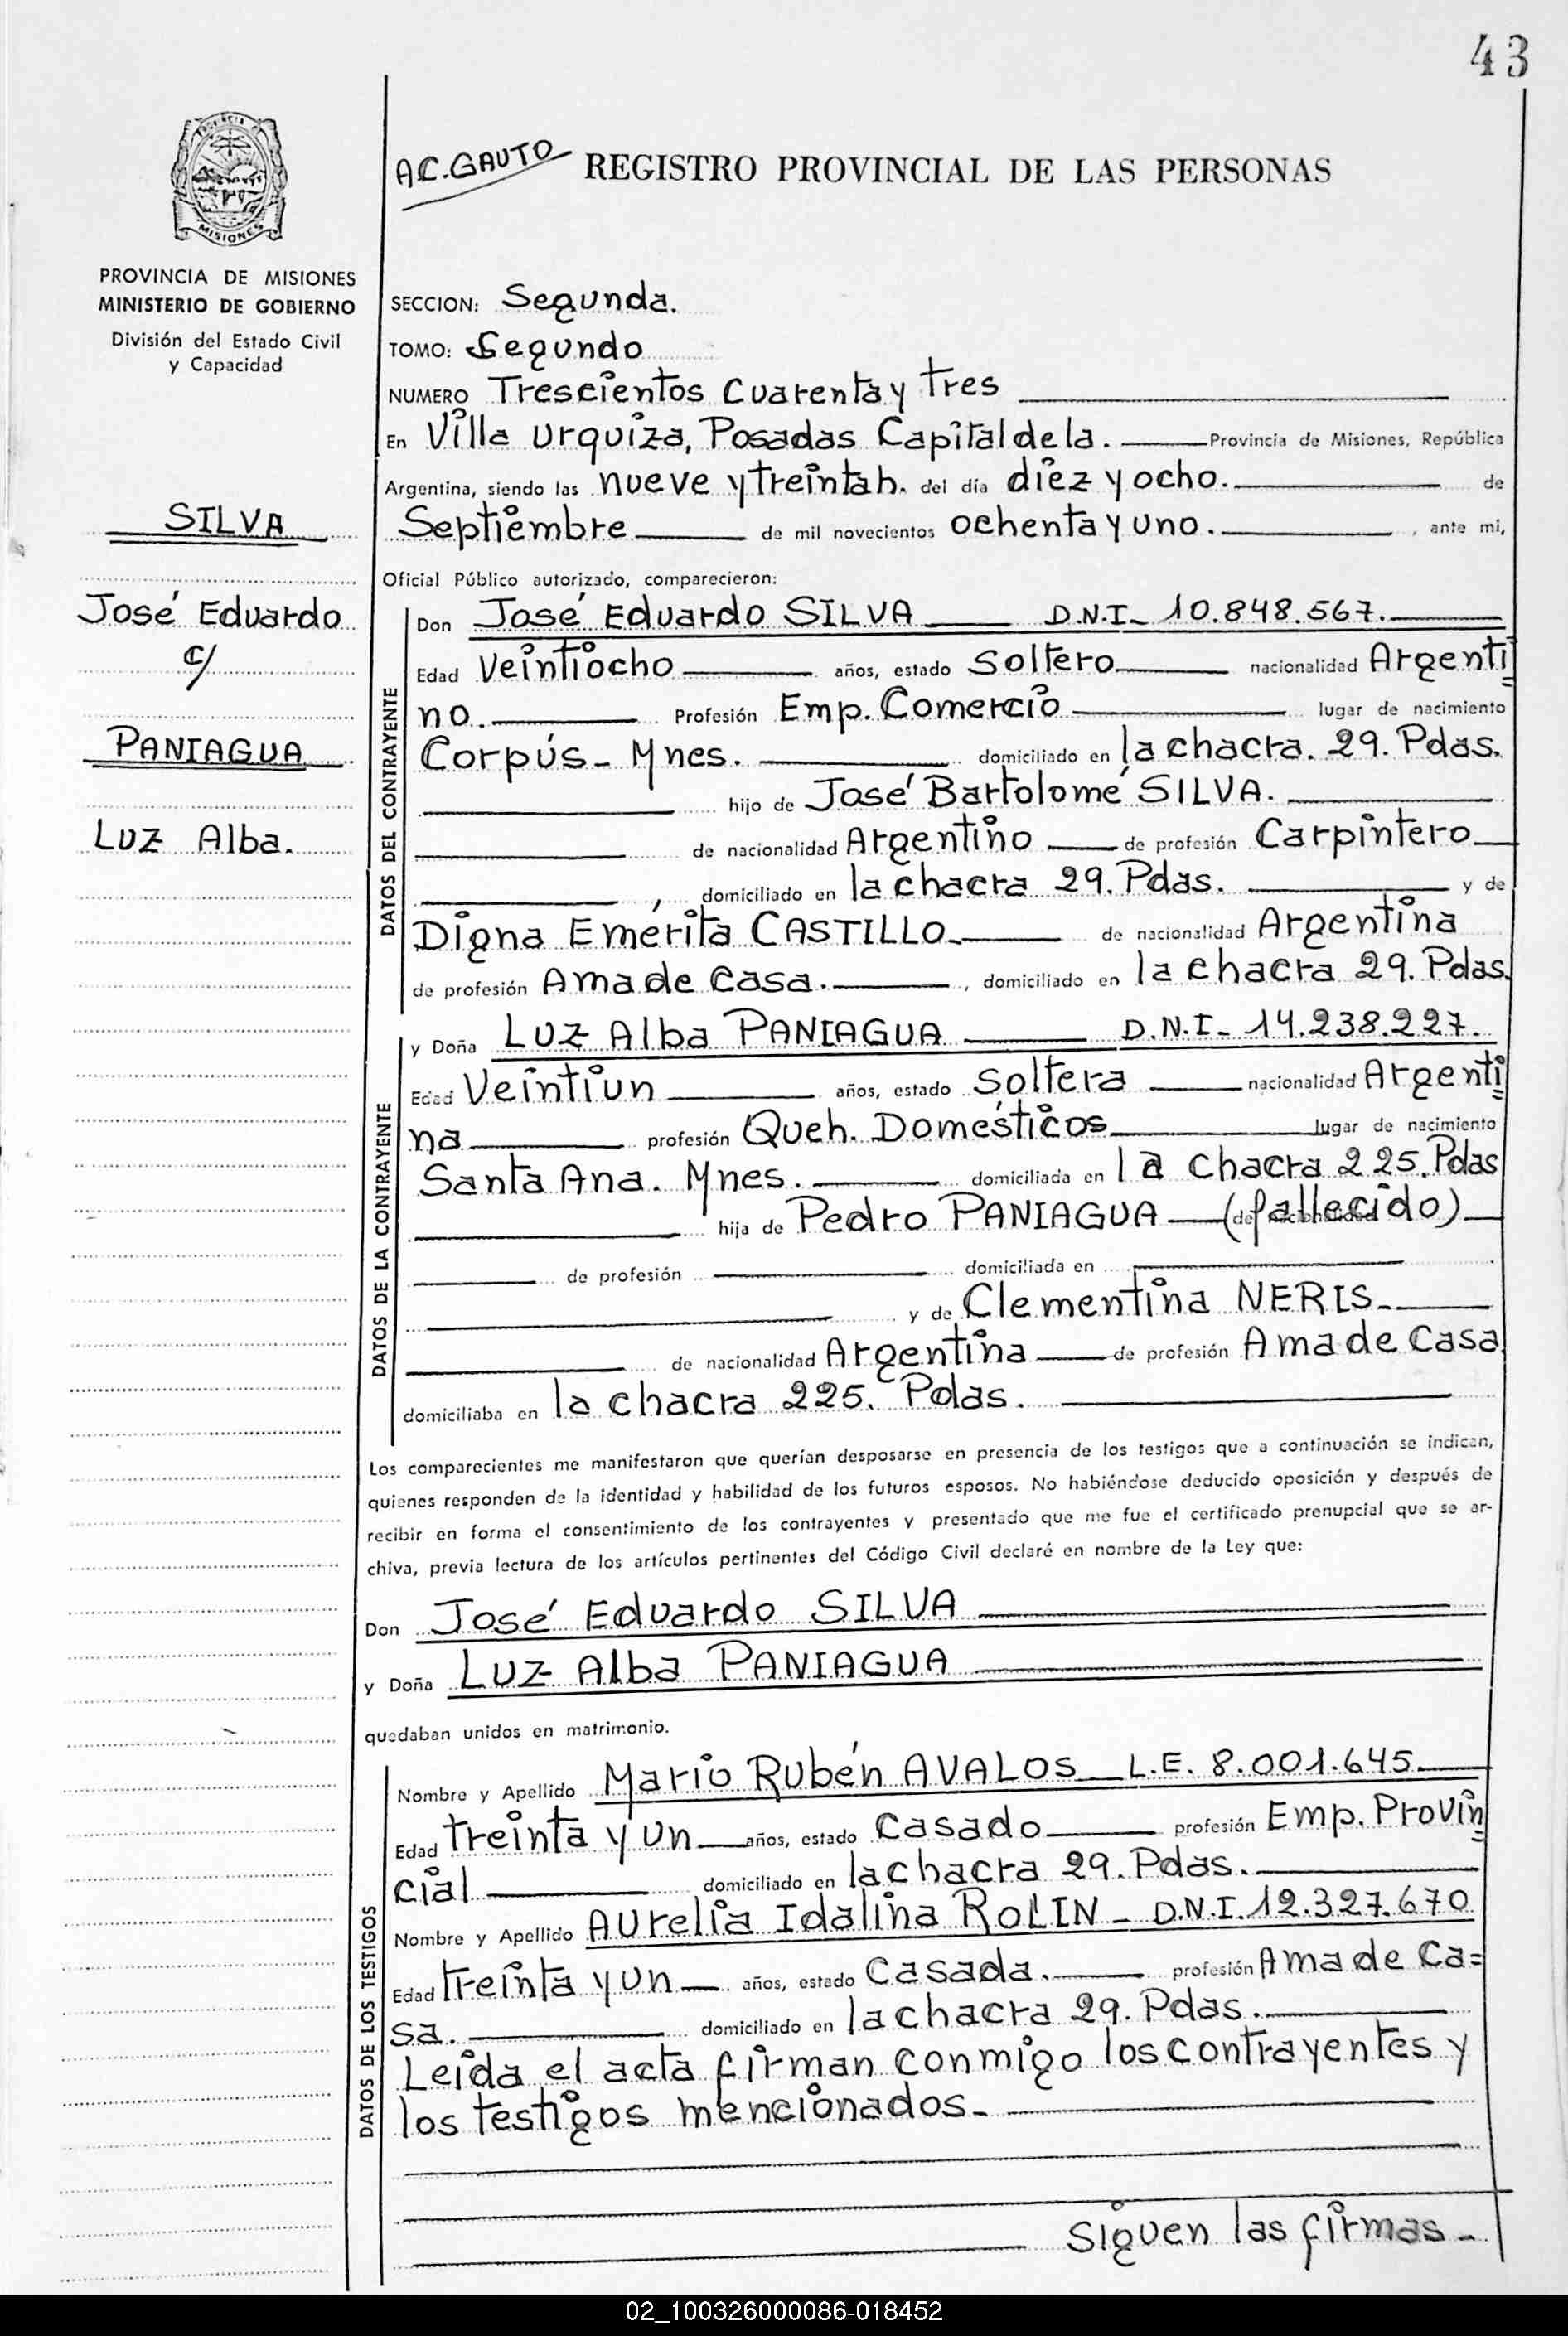 43
PROVINCIA DE
MISIONES
A.C. GAUTO REGISTRO PROVINCIAL DE LAS PERSONAS
PROVINCIA DE MISIONES
MINISTERIO DE GOBIERNO
División del Estado Civil
y Capacidad
SILVA
José Eduardo
c/
PANIAGUA
Luz Alba.
SECCION: Segunda.
TOMO: Segundo
NUMERO Trescientos Cuarenta y tres
En Villa Urquiza, Posadas Capital de la. Provincia de Misiones, República
Argentina, siendo las nueve y treinta h. del día diez y ocho. de
Septiembre de mil novecientos ochenta y uno. , ante mi,
Oficial Público autorizado, comparecieron:
DATOS DEL CONTRAYENTE
Don José Eduardo SILVA D.N.I- 10.848.567.
Edad Veintiocho años, estado Soltero nacionalidad Argenti
no. Profesión Emp. Comercio lugar de nacimiento
Corpús- Mnes. domiciliado en la chacra. 29. Pdas.
hijo de José Bartolomé SILVA.
de nacionalidad Argentino de profesión Carpintero
, domiciliado en la chacra 29. Pdas. y de
Digna Emérita CASTILLO- de nacionalidad Argentina
de profesión Ama de Casa. , domiciliado en la chacra 29. Pdas.
DATOS DE LA CONTRAYENTE
y Doña Luz Alba PANIAGUA D.N.I- 14.238.227.
Edad Veintiun años, estado Soltera nacionalidad Argenti
na profesión Queh. Domésticos lugar de nacimiento
Santa Ana. Mnes. domiciliada en la chacra 225. Pdas
hija de Pedro PANIAGUA (fallecido) de nacionalidad
de profesión domiciliada en
y de Clementina NERIS-
de nacionalidad Argentina de profesión Ama de Casa
domiciliaba en la chacra 225. Pdas.
Los comparecientes me manifestaron que querían desposarse en presencia de los testigos que a continuación se indican,
quienes responden de la identidad y habilidad de los futuros esposos. No habiéndose deducido oposición y después de
recibir en forma el consentimiento de los contrayentes y presentado que me fue el certificado prenupcial que se ar-
chiva, previa lectura de los artículos pertinentes del Código Civil declaré en nombre de la Ley que:
Don José Eduardo SILVA
y Doña Luz Alba PANIAGUA
quedaban unidos en matrimonio.
DATOS DE LOS TESTIGOS
Nombre y Apellido Mario Rubén AVALOS L.E. 8.001.645.
Edad treinta y un años, estado Casado profesión Emp. Provin
cial domiciliado en la chacra 29. Pdas.
Nombre y Apellido Aurelia Idalina ROLIN- D.N.I. 12.327.670
Edad treinta y un años, estado Casada. profesión Ama de Ca=
sa. domiciliado en la chacra 29. Pdas.
Leída el acta firman conmigo los contrayentes y
los testigos mencionados-
Siguen las firmas-
02_100326000086-018452